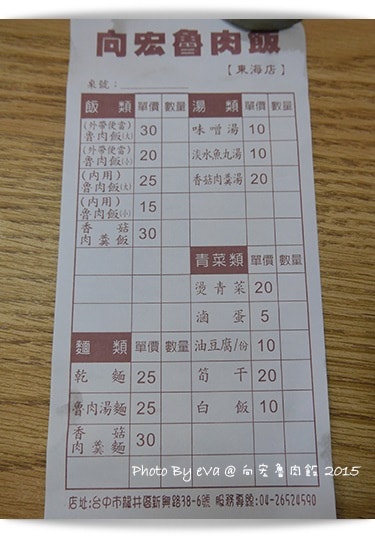 向宏魯肉飯
【東海店】
桌號：
飯類 單價 數量 湯類 單價 數量
(外帶便當) 魯肉飯(大) 30 味噌湯 10
(外帶便當) 魯肉飯(小) 20 淡水魚丸湯 10
(內用) 魯肉飯(大) 25 香菇肉羹湯 20
(內用) 魯肉飯(小) 15
香菇肉羹飯 30
青菜類 單價 數量
燙青菜 20
滷蛋 5
麵類 單價 數量 油豆腐/份 10
乾麵 25 筍干 20
魯肉湯麵 25 白飯 10
香菇肉羹麵 30
Photo By eva @ 向宏魯肉飯 2015
店址:台中市龍井區新興路38-6號 服務專線:04-26524590